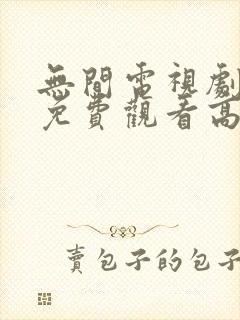 無間電視劇
免費觀看高
賣包子的包子